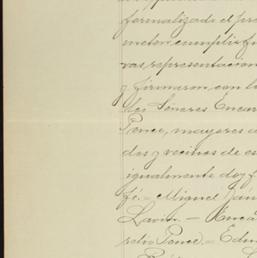 formalizado el pre
meten cumplir fi
vas representacion
y firmaron con lo
los Señores Encar
Ponce, mayores d
dos y vecinos de es
igualmente doy f
fé = Miguel
Lavin =
Ponce = Edu